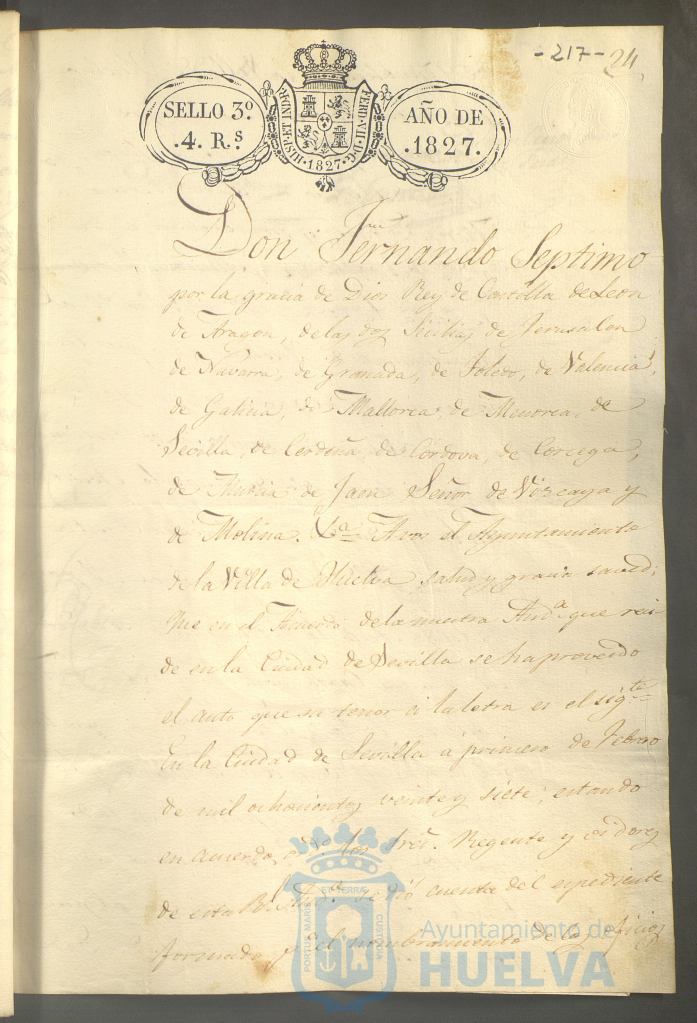 - 217 - 24
SELLO 3º
.4. R.s
HISP. ET IND. R.
FERD. VII. D.G.
.1827.
AÑO DE
.1827.
Don Fernando Septimo
por la gracia de Dios Rey de Castilla de Leon
de Aragon, de las dos Sicilias de Jerusalen
de Navarra, de Granada, de Toledo, de Valencia,
de Galicia, de Mallorca, de Menorca, de
Sevilla, de Cerdeña, de Cordova, de Corcega,
de Murcia de Jaen Señor de Vizcaya y
de Molina. &a A vos el Ayuntamiento
de la Villa de Huelva salud y gracia saved;
Que en el Acuerdo de la nuestra Auda. que reci-
de en la Ciudad de Sevilla se ha proveido
el auto que su tenor á la letra es el sigte
En la Ciudad de Sevilla á primero de Febrero
de mil ochocientos veinte y siete; estando
en acuerdo los Sres. Regente y oidores
de esta Rl. Auda. se dió cuenta del expediente
formado pa. el nombramiento de los oficios
PORTUS MARIS
ET TERRÆ
CUSTODIA
Ayuntamiento de
HUELVA